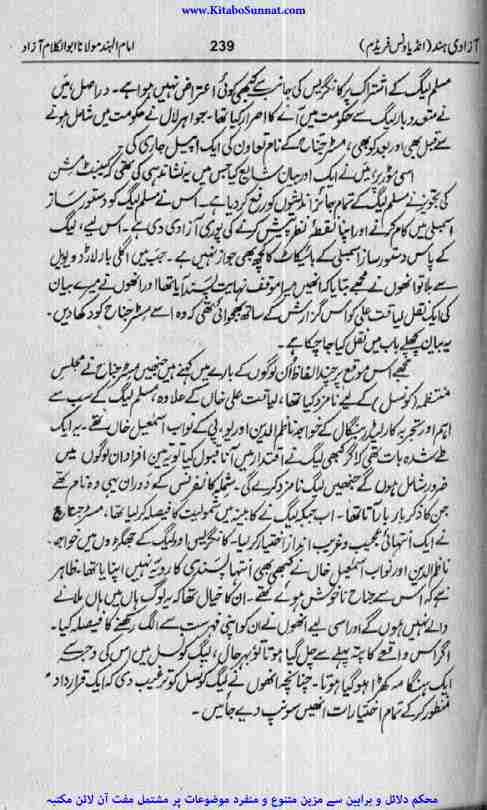 www.KitaboSunnat.com
آزادی ہند (انڈیا ونس فریڈم)
239
امام الہند مولانا ابوالکلام آزاد
مسلم لیگ کے اشتراک پر کانگریس کی جانب سے کبھی کوئی اعتراض نہیں ہوا ہے۔ دراصل میں
نے متعدد بار لیگ سے حکومت میں آنے کا اصرار کیا تھا۔ جواہر لال نے حکومت میں شامل ہونے
سے قبل بھی اور بعد کو بھی، مسٹر جناح کے نام تعاون کی ایک اپیل جاری کی۔
اسی موڑ پر میں نے ایک اور بیان شایع کیا جس میں یہ نشاندہی کی گئی تھی کہ کیبنٹ مشن
کی تجویز نے مسلم لیگ کے تمام جائز اندیشوں کو رفع کر دیا ہے۔ اس نے مسلم لیگ کو دستور ساز
اسمبلی میں کام کرنے اور اپنا نقطۂ نظر پیش کرنے کی پوری آزادی دی ہے۔ اس لیے، لیگ
کے پاس دستور ساز اسمبلی کے بائیکاٹ کا کچھ بھی جواز نہیں ہے۔ جب میں اگلی بار لارڈ ویویل
سے ملا تو انھوں نے مجھے بتایا کہ انھیں میرا موقف نہایت پسند آیا تھا اور انھوں نے میرے بیان
کی ایک نقل لیاقت علی کو اس گزارش کے ساتھ بھجوائی تھی کہ وہ اسے مسٹر جناح کو دکھا دیں۔
یہ بیان پچھلے باب میں نقل کیا جا چکا ہے۔
مجھے اس موقع پر چند الفاظ اُن لوگوں کے بارے میں کہنے ہیں جنھیں مسٹر جناح نے مجلسِ
منتظمہ (کونسل) کے لیے نامزد کیا تھا، لیاقت علی خاں کے علاوہ، مسلم لیگ کے سب سے
اہم اور تجربہ کار لیڈر بنگال کے خواجہ ناظم الدین اور یو۔پی کے نواب اسمٰعیل خاں تھے۔ یہ ایک
طے شدہ بات تھی کہ اگر کبھی لیگ نے اقتدار میں آنا قبول کیا تو یہ تین افراد ان لوگوں میں
ضرور شامل ہوں گے جنھیں لیگ نامزد کرے گی۔ شملہ کانفرنس کے دوران یہی وہ نام تھے
جن کا ذکر بار بار آتا تھا۔ اب جبکہ لیگ نے کابینہ میں شمولیت کا فیصلہ کر لیا تھا، مسٹر جناح
نے ایک انتہائی عجیب و غریب انداز اختیار کر لیا۔ کانگریس اور لیگ کے جھگڑوں میں خواجہ
ناظم الدین اور نواب اسمٰعیل خاں نے کبھی بھی انتہا پسندی کا رویہ نہیں اپنایا تھا۔ ظاہر
ہے کہ اس سے جناح ناخوش ہوئے تھے۔ ان کا خیال تھا کہ یہ لوگ ہاں میں ہاں ملانے
والے نہیں ہوں گے اور اسی لیے انھوں نے ان کو اپنی فہرست سے الگ رکھنے کا فیصلہ کیا۔
اگر اس واقعے کا پتہ پہلے سے چل گیا ہوتا تو بہر حال، لیگ کونسل میں اس کی وجہ سے
ایک ہنگامہ کھڑا ہو گیا ہوتا۔ چنانچہ انھوں نے لیگ کونسل کو ترغیب دی کہ ایک قرارداد
منظور کر کے تمام اختیارات انھیں سونپ دیے جائیں۔
محکم دلائل و براہین سے مزین متنوع و منفرد موضوعات پر مشتمل مفت آن لائن مکتبہ